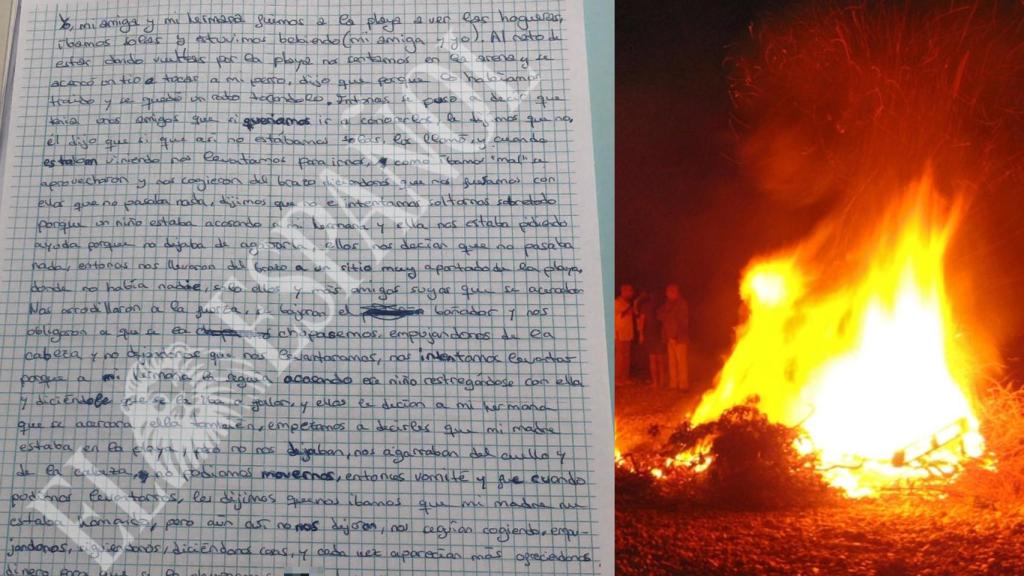 Yo, mi amiga y mi hermana fuimos a la playa a ver las hogueras,
íbamos solas y estuvimos bebiendo (mi amiga y yo). Al rato de
estar dando vueltas por la playa nos sentamos en la arena y se
acercó un tío a tocar a mi perro, dijo que porque lo habíamos
traído y se quedó un rato tocándolo. Entonces se puso a decir que
tenía unos amigos que si queríamos ir a conocerlos, le dijimos que no,
él dijo que si que así no estábamos solas, les llamó, y cuando
estaban viniendo nos levantamos para irnos, y como íbamos "mal" se
aprovecharon y nos cogieron del brazo diciéndonos que nos fuéramos con
ellos que no pasaba nada, dijimos que no e intentamos soltarnos sobretodo
porque un niño estaba acosando a mi hermana y ella nos estaba pidiendo
ayuda porque no dejaba de agarrarla, ellos nos decían que no pasaba
nada, entonces nos llevaron del brazo a un sitio muy apartado de la playa,
donde no había nadie, solo ellos y más amigos suyos que se acercaban
Nos arrodillaron a la fuerza, se bajaron el bañador y nos
obligaron a que se la chupásemos, empujándonos de la
cabeza y no dejándonos que nos levantáramos, nos intentamos levantar
porque a mi hermana la seguía acosando ese niño restregándose con ella
y diciéndole que se la iba a follar, y ellos le decían a mi hermana
que se acercara ella también, empezamos a decirles que mi madre
estaba en la playa pero no nos dejaban, nos agarraban del cuello y
de la cabeza y no podíamos movernos, entonces vomité y fue cuando
podimos levantarnos, les dijimos que nos íbamos que mi madre nos
estaba llamando, pero aún así no nos dejaron, nos seguían cogiendo, empu-
jándonos, siguiéndonos, diciéndonos cosas, y cada vez aparecían más ofreciéndonos
dinero para que se la
EL ESPAÑOL